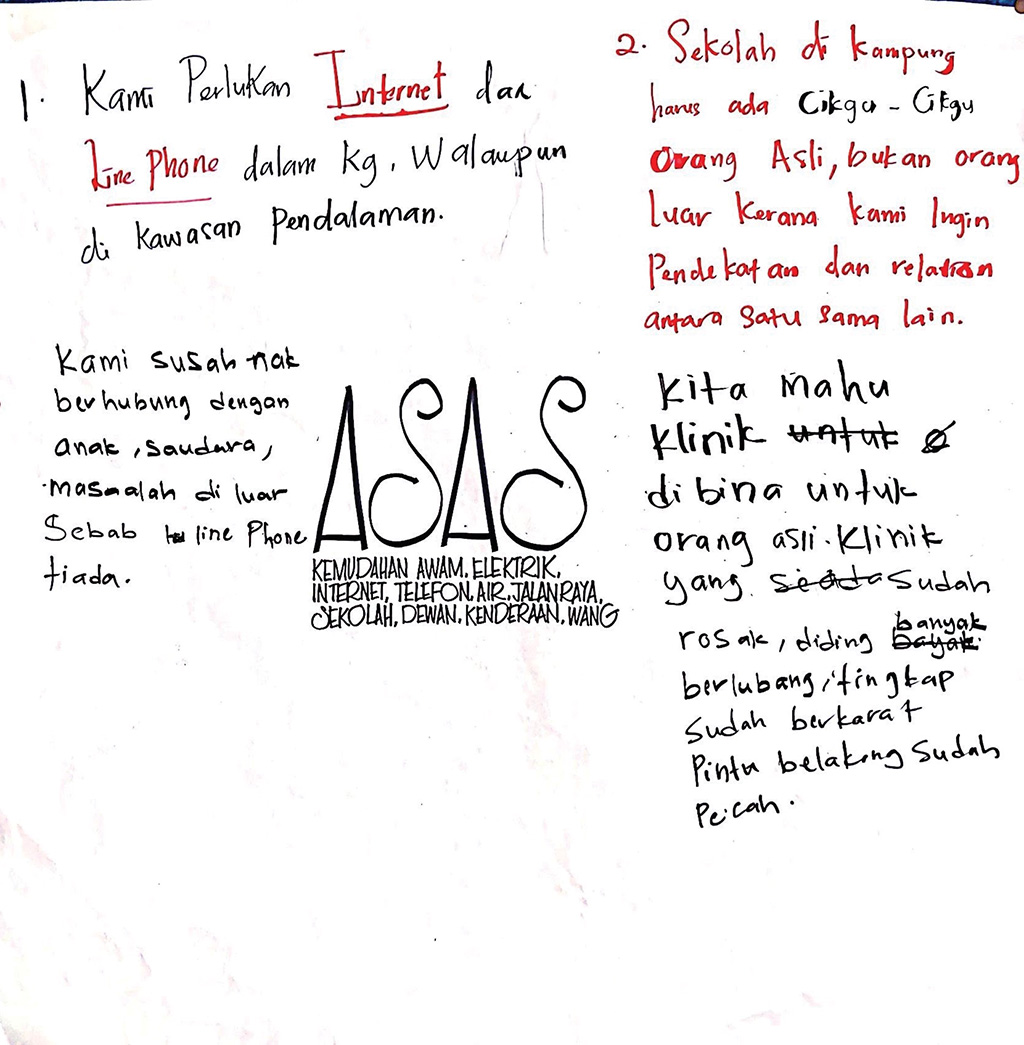 1. Kami Perlukan Internet dan
Line Phone dalam kg, Walaupun
di Kawasan Pendalaman.
2. Sekolah di kampung
harus ada Cikgu - Cikgu
Orang Asli, bukan orang
luar kerana kami Ingin
Pendekatan dan relation
antara satu sama lain.
Kami susah nak
berhubung dengan
anak, saudara,
masaalah di luar
Sebab line Phone
tiada.
ASAS
KEMUDAHAN AWAM, ELEKTRIK,
INTERNET, TELEFON, AIR, JALANRAYA,
SEKOLAH, DEWAN, KENDERAAN, WANG
Kita mahu
Klinik untuk
di bina untuk
orang asli. Klinik
yang sudah
rosak, diding banyak
berlubang, tingkap
sudah berkarat
Pintu belakang sudah
Pecah.